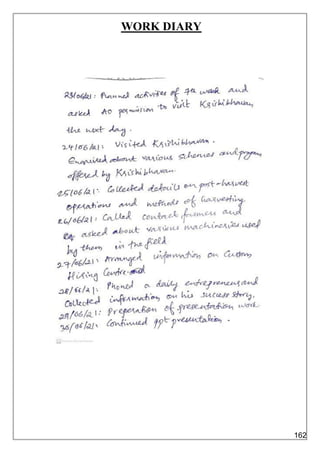 WORK DIARY
23/06/21: Planned activities of 7th week and
asked AO permission to visit Krishibhavan
the next day.
24/06/21: Visited Krishibhavan.
Enquired about various schemes and programs
offered by Krishibhavan.
25/06/21: Collected details on post-harvest
operations and methods of harvesting
26/06/21: Called contact farmers and
asked about various machineries used
by them in the field
27/06/21: Arranged information on Custom
Hiring Centre
28/06/21: Phoned a daily entrepreneur and
collected information on his success story.
29/06/21: Preparation of presentation work
30/06/21: Continued ppt presentation.
162